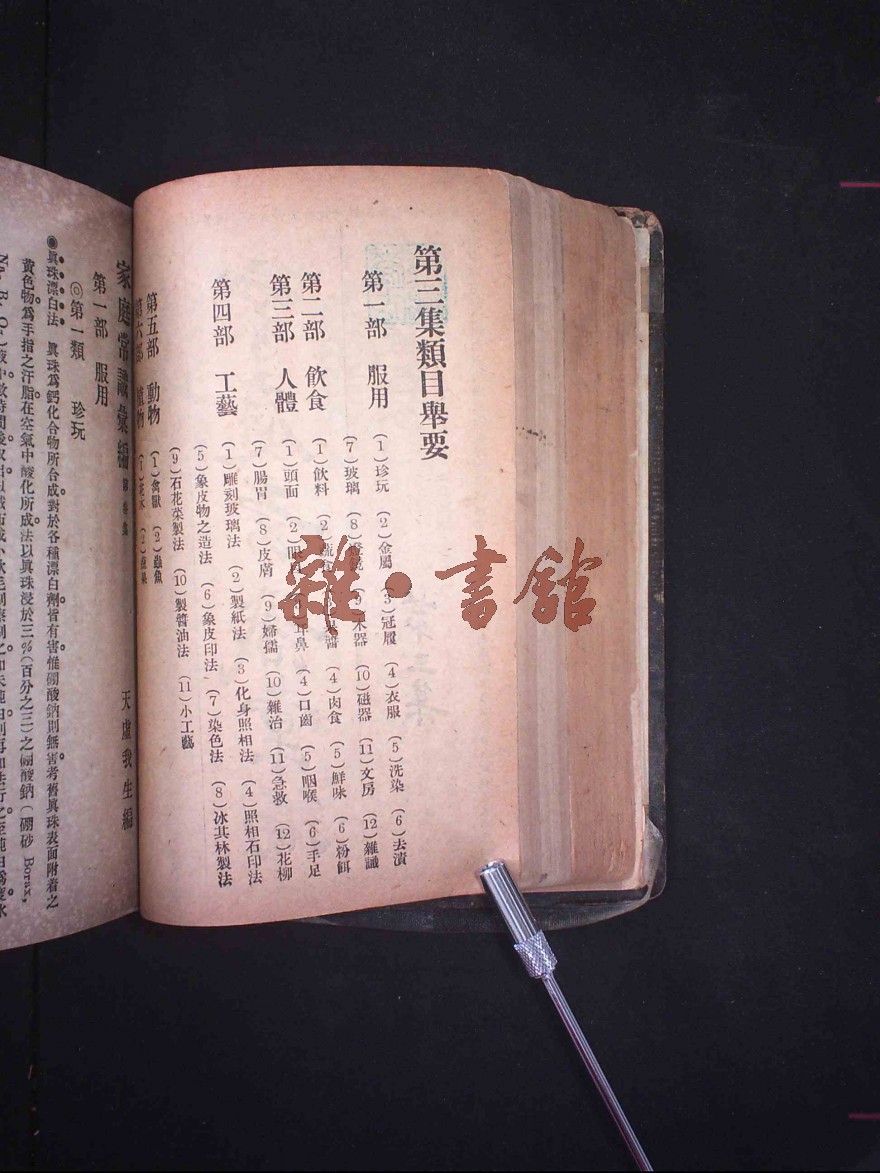 第三集類目舉要
第一部 服用
(1)珍玩 (2)金屬 (3)冠履 (4)衣服 (5)洗染 (6)去漬
(7)玻璃 (8)燈鏡 (9)木器 (10)磁器 (11)文房 (12)雜識
第二部 飲食
(1)飲料 (2)蔬食 醬 (4)肉食 (5)鮮味 (6)粉餌
第三部 人體
(1)頭面 (2)眼 耳鼻 (4)口齒 (5)咽喉 (6)手足
(7)腸胃 (8)皮膚 (9)婦孺 (10)雜治 (11)急救 (12)花柳
第四部 工藝
(1)雕刻玻璃法 (2)製紙法 (3)化身照相法 (4)照相石印法
(5)象皮物之造法 (6)象皮印法 (7)染色法 (8)冰其林製法
(9)石花菜製法 (10)製醬油法 (11)小工藝
第五部 動物
(1)禽獸 (2)蟲魚
第六部 植物
家庭常識彙編 第三集
天虛我生編
第一部 服用
◎第一類 珍玩
◉眞珠漂白法 眞珠爲鈣化合物所合成對於各種漂白劑皆有害惟硼酸鈉則無害考舊眞珠表面附着之
黃色物爲手指之汗脂在空氣中酸化所成法以眞珠浸於三%(百分之三)之硼酸鈉(硼砂 Borax,
雜·書館